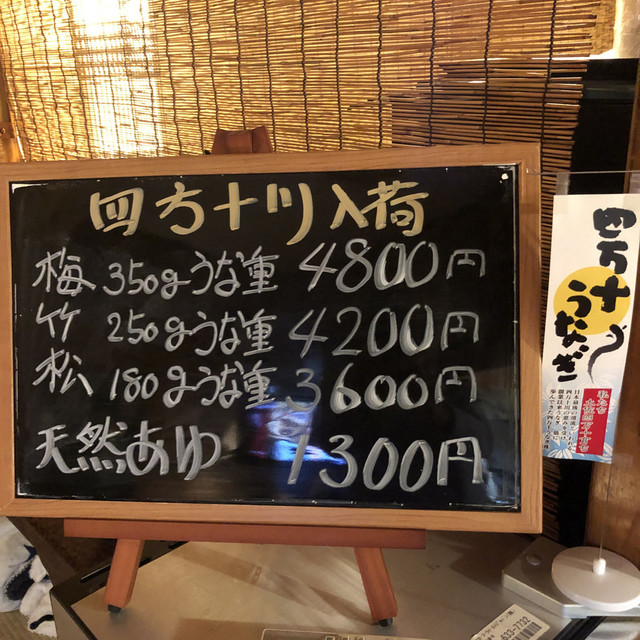 四万十川入荷
梅 350gうな重 4800円
竹 250gうな重 4200円
松 180gうな重 3600円
天然あゆ 1300円
四万十うなぎ